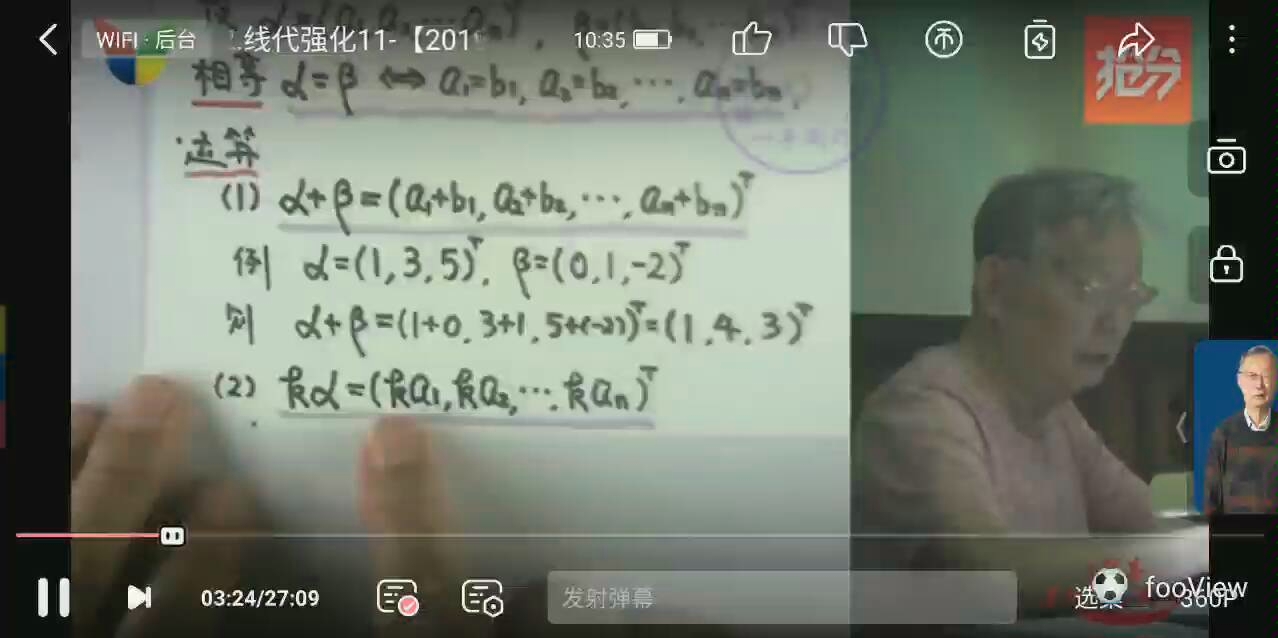 WIFI · 后台
线代强化11-【201
10:35
抢分
相等 α=β ⟺ a₁=b₁, a₂=b₂, ⋯, aₙ=bₙ,
运算
(1) α+β=(a₁+b₁, a₂+b₂, ⋯, aₙ+bₙ)ᵀ
例 α=(1,3,5)ᵀ, β=(0,1,-2)ᵀ
则 α+β=(1+0, 3+1, 5+(-2))ᵀ=(1,4,3)ᵀ
(2) kα=(ka₁, ka₂, ⋯, kaₙ)ᵀ
03:24/27:09
发射弹幕
选集
fooView
360P